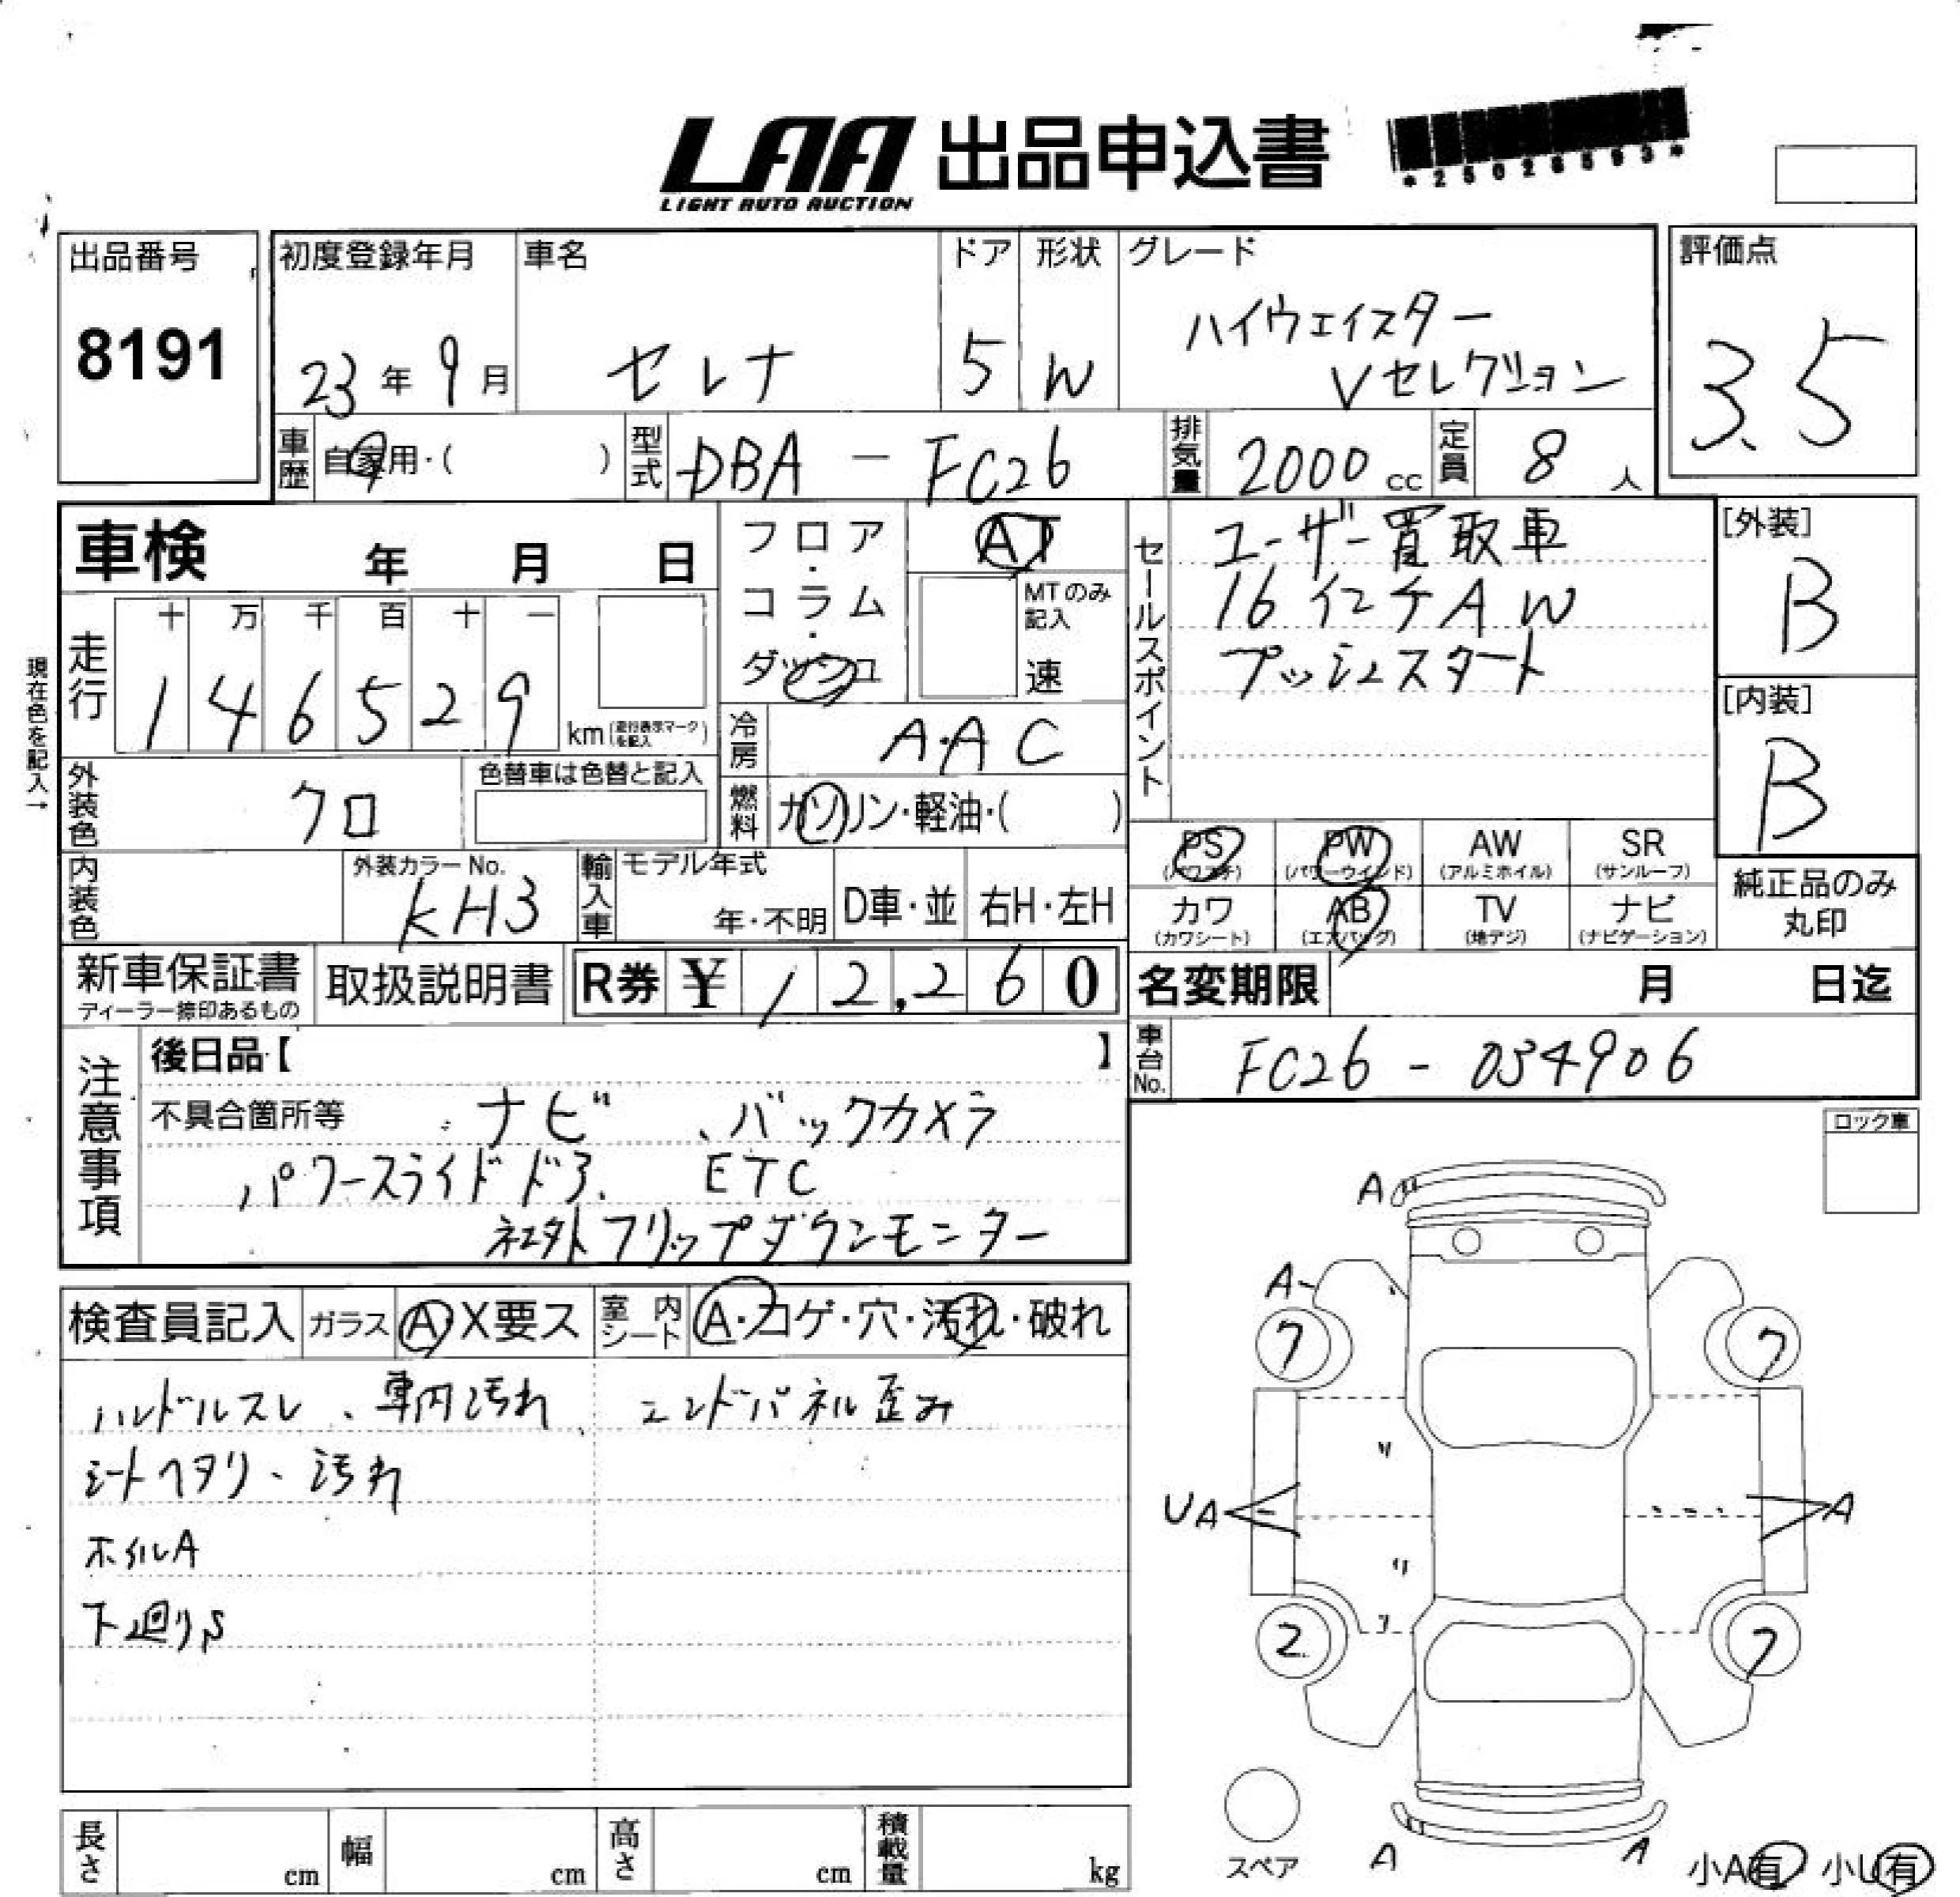 LAA 出品申込書
LIGHT AUTO AUCTION
*25026593*
出品番号
8191
初度登録年月
23年9月
車名
セレナ
ドア
5
形状
W
グレード
ハイウェイスター
Vセレクション
評価点
3.5
車歴
自家用・( )
型式
DBA - FC26
排気量
2000 cc
定員
8 人
車検 年 月 日
フロア・コラム・ダッシュ
AT
MTのみ記入
速
セールスポイント
ユーザー買取車
16インチAW
プッシュスタート
[外装]
B
[内装]
B
現在色を記入→
走行
十 万 千 百 十 一
1 4 6 5 2 9
km(走行表示マークを記入)
冷房
A・AC
外装色
クロ
色替車は色替と記入
燃料
ガソリン・軽油・( )
PS (パワステ)
PW (パワーウインド)
AW (アルミホイル)
SR (サンルーフ)
カワ (カワシート)
AB (エアバッグ)
TV (地デジ)
ナビ (ナビゲーション)
純正品のみ丸印
内装色
外装カラーNo.
KH3
輸入車
モデル年式
年・不明
D車・並
右H・左H
新車保証書
ディーラー捺印あるもの
取扱説明書
R券 ¥ 12,260
名変期限 月 日迄
車台No.
FC26 - 034906
注意事項
後日品【 】
不具合箇所等
ナビ、バックカメラ
パワースライドドア、ETC
社外フリップダウンモニター
ロック車
検査員記入
ガラス A X要ス
室内シート A・コゲ・穴・汚れ・破れ
ハンドルスレ、車内汚れ
エンドパネル歪み
シートヘタリ、汚れ
ホイルA
下廻りS
A
A
7
7
UA
A
2
7
スペア
A
A
小A有 小U有
長さ cm
幅 cm
高さ cm
積載量 kg